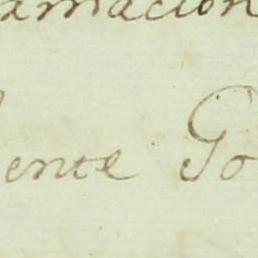 amacion
ente Go